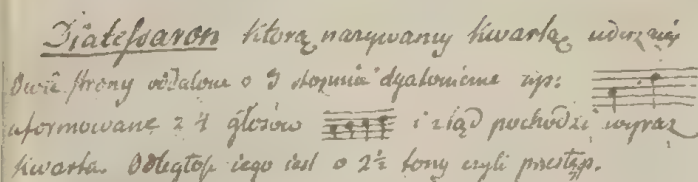 Diatessaron którą nazywamy kwartą
Dwie strony oddalone o 3 stopnie dyatoniczne np:
uformowane z 4 głosów i ztąd pochodzi wyraz
kwarta. Odległość iego iest o 2½ tony czyli przestęp.